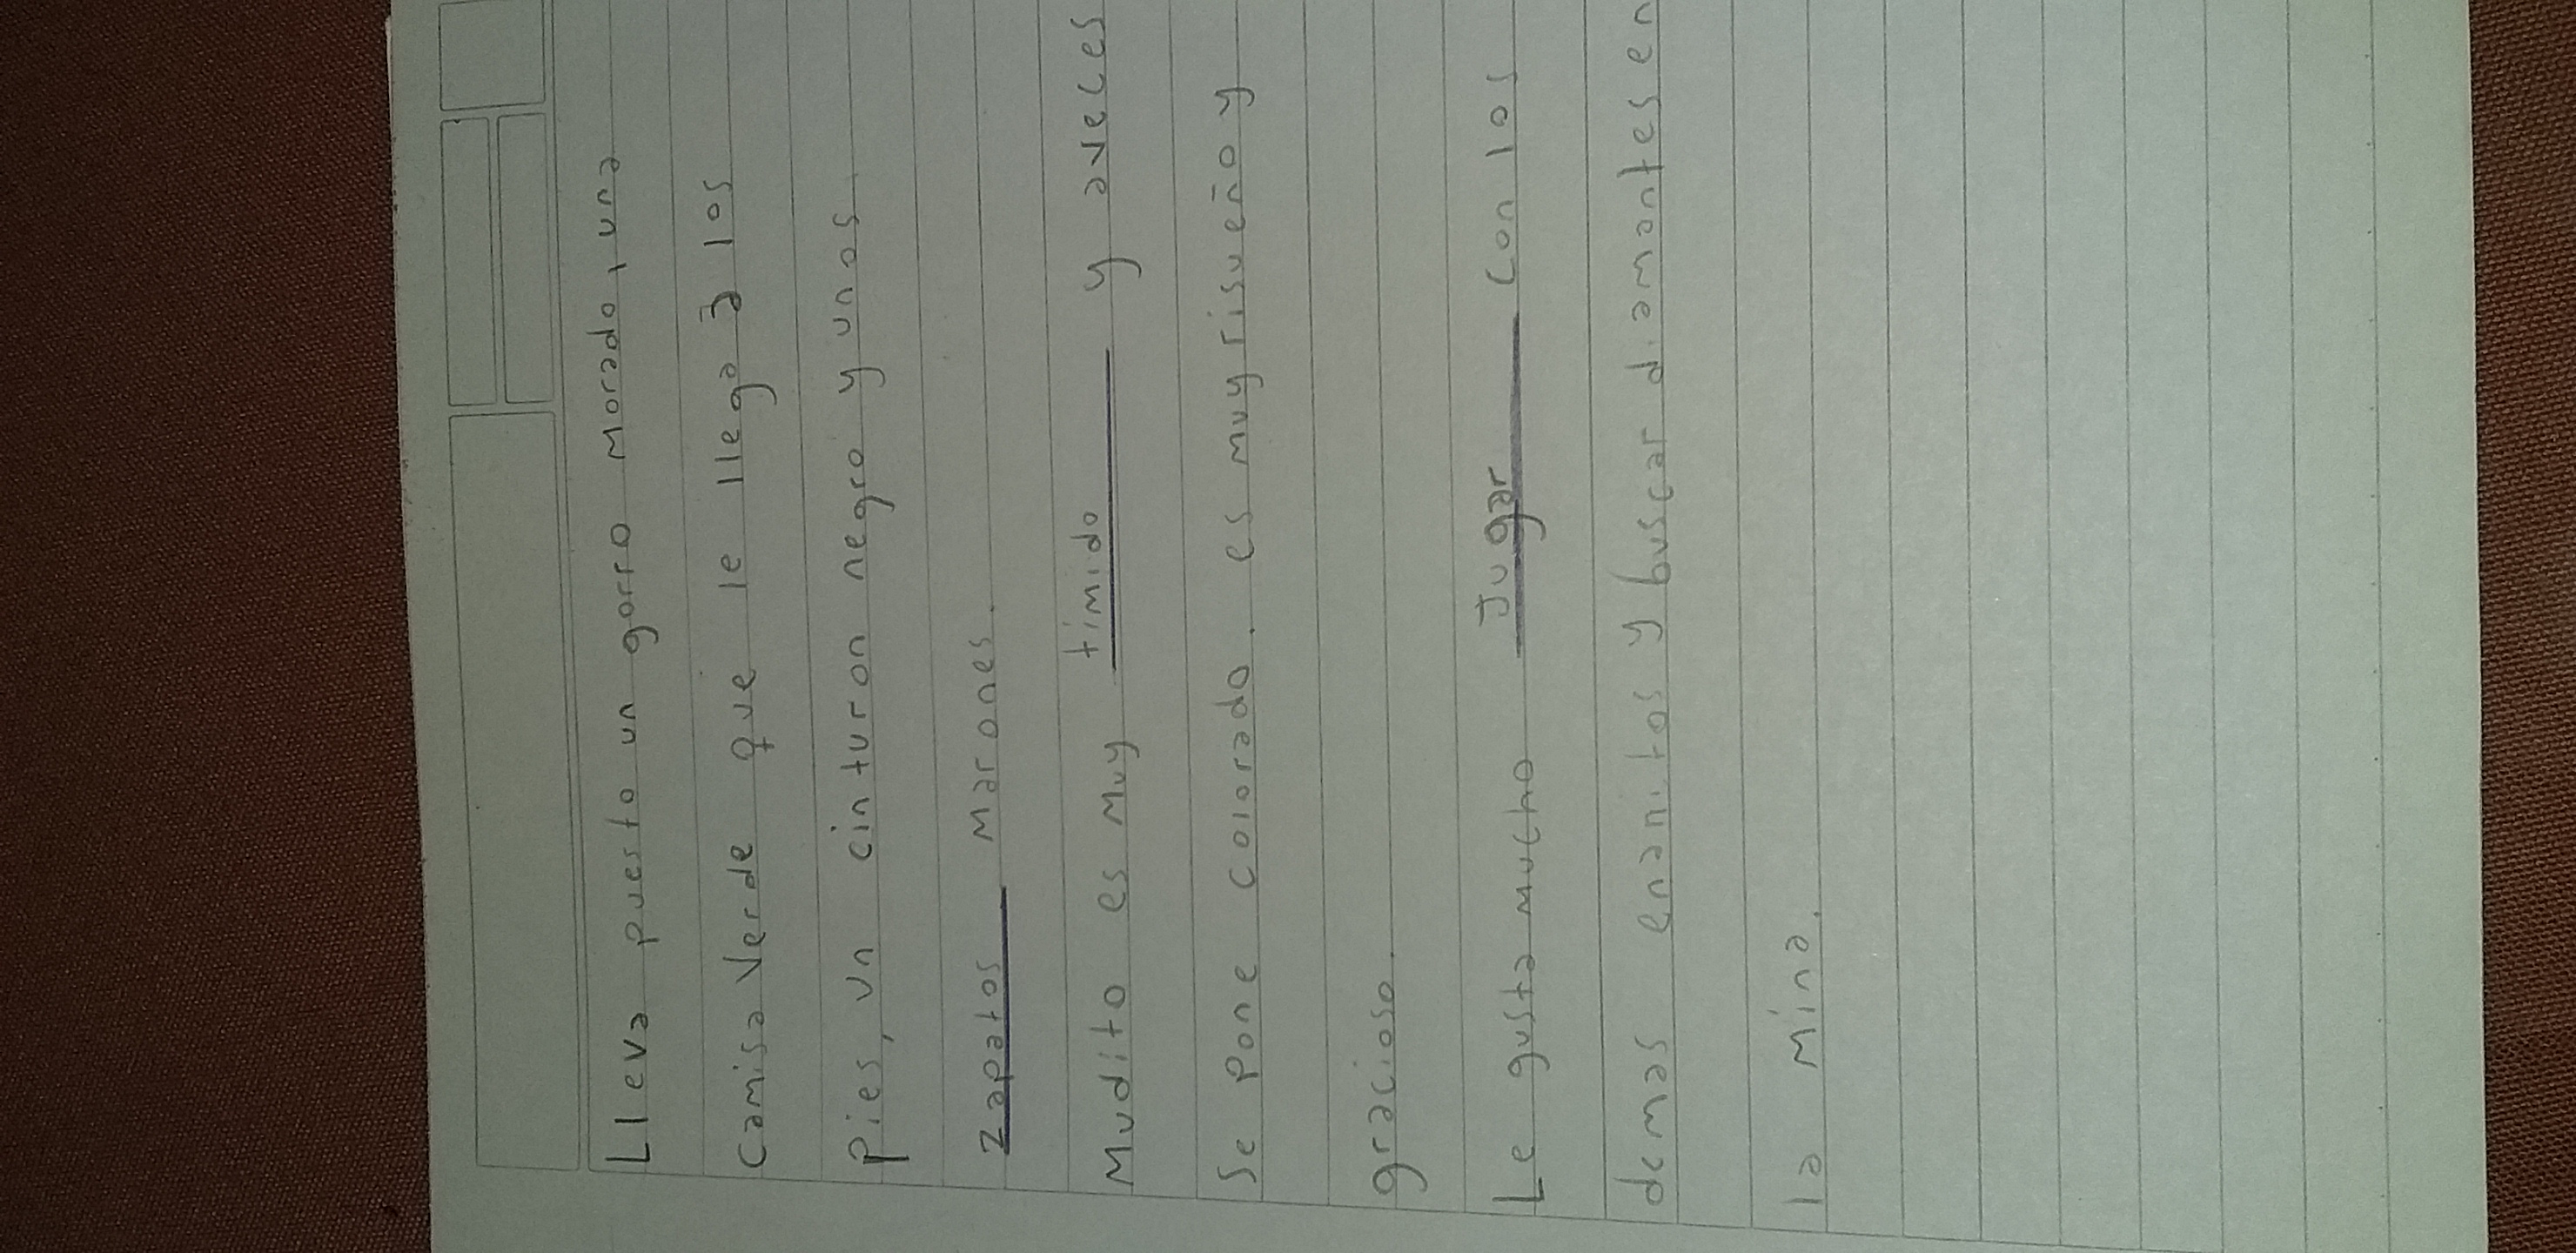 Lleva puesto un gorro morado, una
Camisa Verde que le llega a los
Pies, un cinturon negro y unos
zapatos marones.
Mudito es muy tímido y aveces
Se pone colorado. es muy risueño y
gracioso.
Le gusta mucho Jugar con los
demas enanitos y buscar diamantes en
la mina.